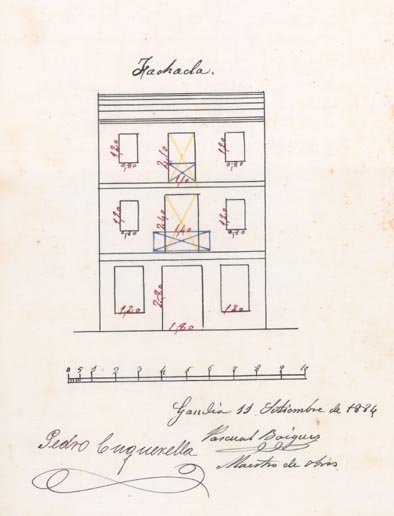 Fachada.
1,20 2,10 1,20
0,80 1,10 0,80
1,20 2,40 1,20
0,80 1,40 0,80
1,20 2,80 1,20
1,80
0 5 1 2 3 4 5 6 7 8 9 10
Gandia 11 Setiembre de 1884
Pedro Cuquerella Pascual Boigues
Maestro de obras